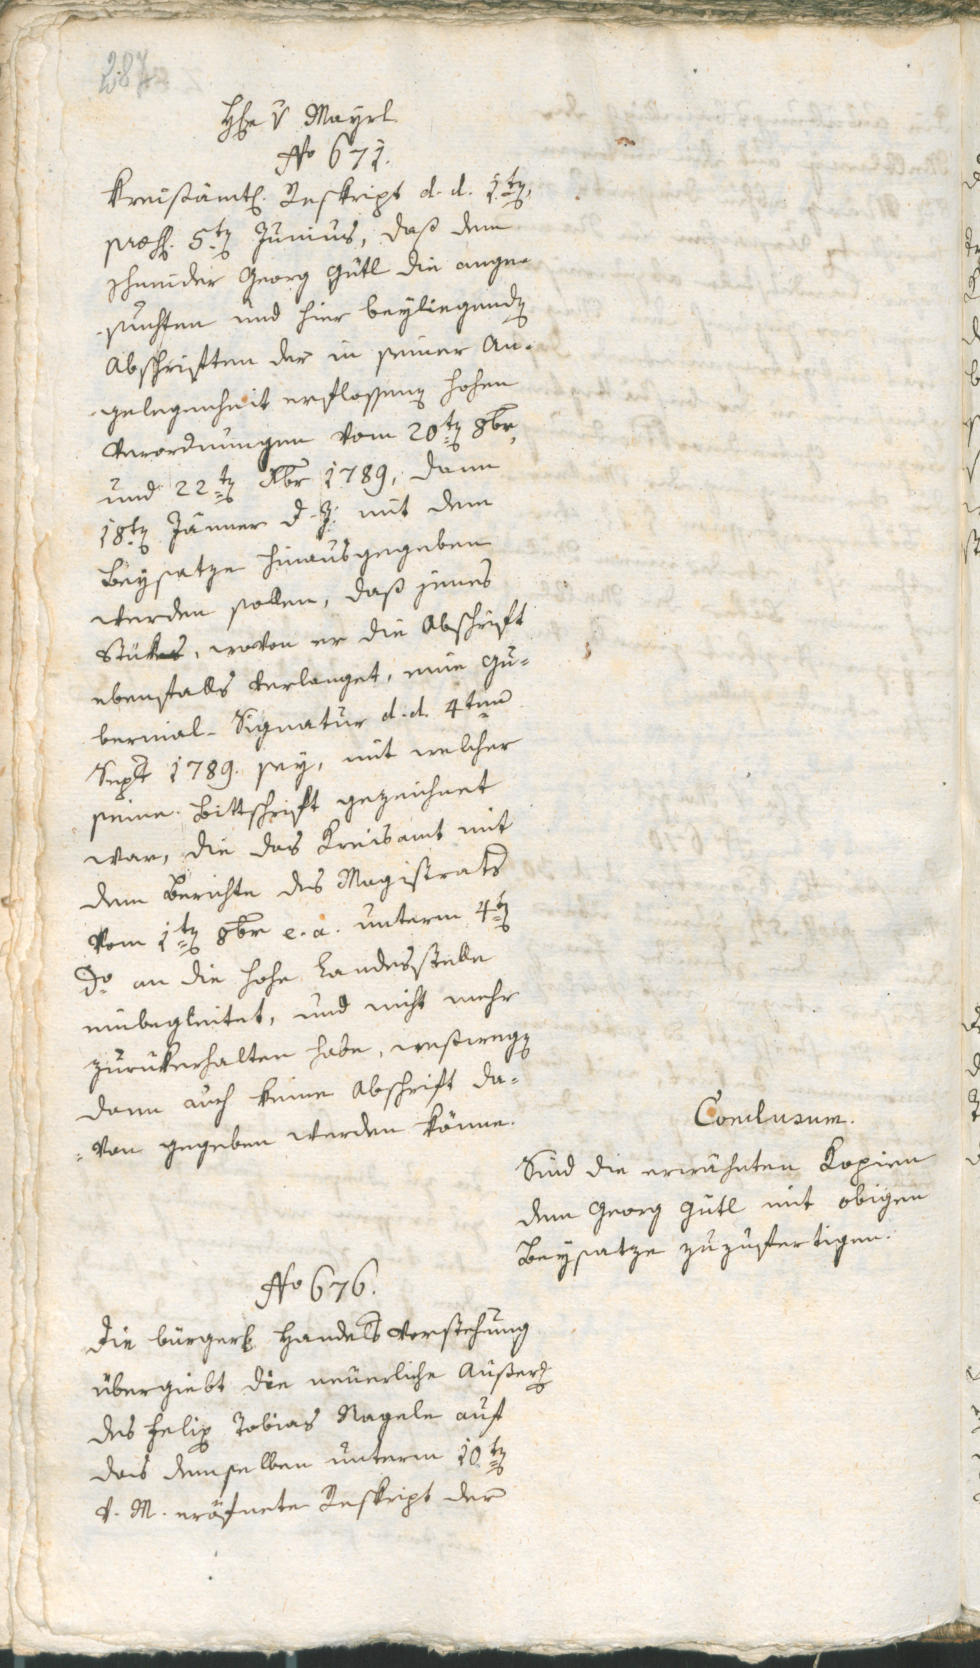 287
H. v Mayrl
No 671.
Kreisämtl. Reskript d. d. 1ten,
praes. 5ten Junius, daß dem
Schneider Georg Gütl die ange-
suchten und hier beyliegenden
Abschriften der in seiner An-
gelegenheit erflossenen hohen
Verordnungen vom 20ten 8br,
und 22ten Xbr 1789, dann
18ten Jänner d. J. mit dem
Beysatze hinausgegeben
werden sollen, daß jenes
Stük, wovon er die Abschrift
ebenfalls verlanget, eine Gu-
bernial-Signatur d. d. 4ten
Sept 1789. sey, mit welcher
seine Bittschrift gezeichnet
war, die das Kreisamt mit
dem Berichte des Magistrats
vom 1ten 8br e. a. unterm 4ten
do an die hohe Landesstelle
einbegleitet, und nicht mehr
zurükerhalten habe, weßwegen
dann auch keine Abschrift da-
von gegeben werden könne.
Conclusum.
Sind die erwähnten Kopien
dem Georg Gütl mit obigen
Beysatze zuzufertigen.
No 676.
Die bürgerl. Handels Vorstehung
übergiebt die neuerliche Außerung
des Felix Tobias Nagele auf
das demselben unterm 10ten
v. M. eröfnete Reskript der